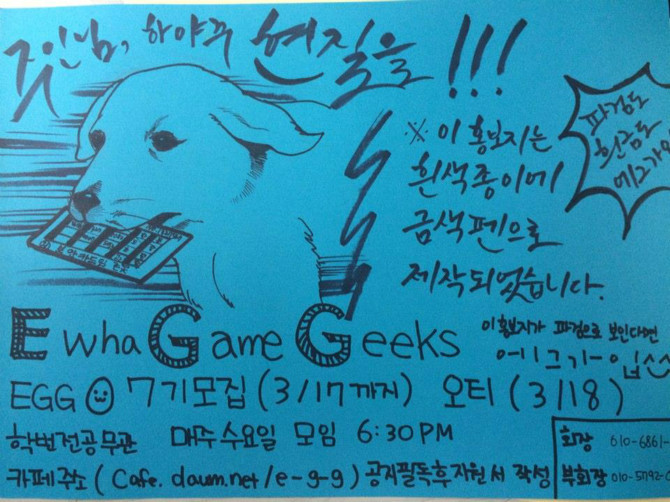 주인님, 하야꾸 현질을!!!
파검도
흰금도
에그가요
※ 이 홍보지는
흰색종이에
금색펜으로
제작되었습니다.
Ewha Game Geeks
이홍보지가 파검으로 보인다면
에그가입신
EGG 7기모집 (3/17까지) 오티 (3/18)
학번전공무관 매주수요일 모임 6:30PM
회장 010-6861-
카페주소 (Cafe.daum.net/e-g-g) 공지필독후지원서 작성
부회장 010-5792-